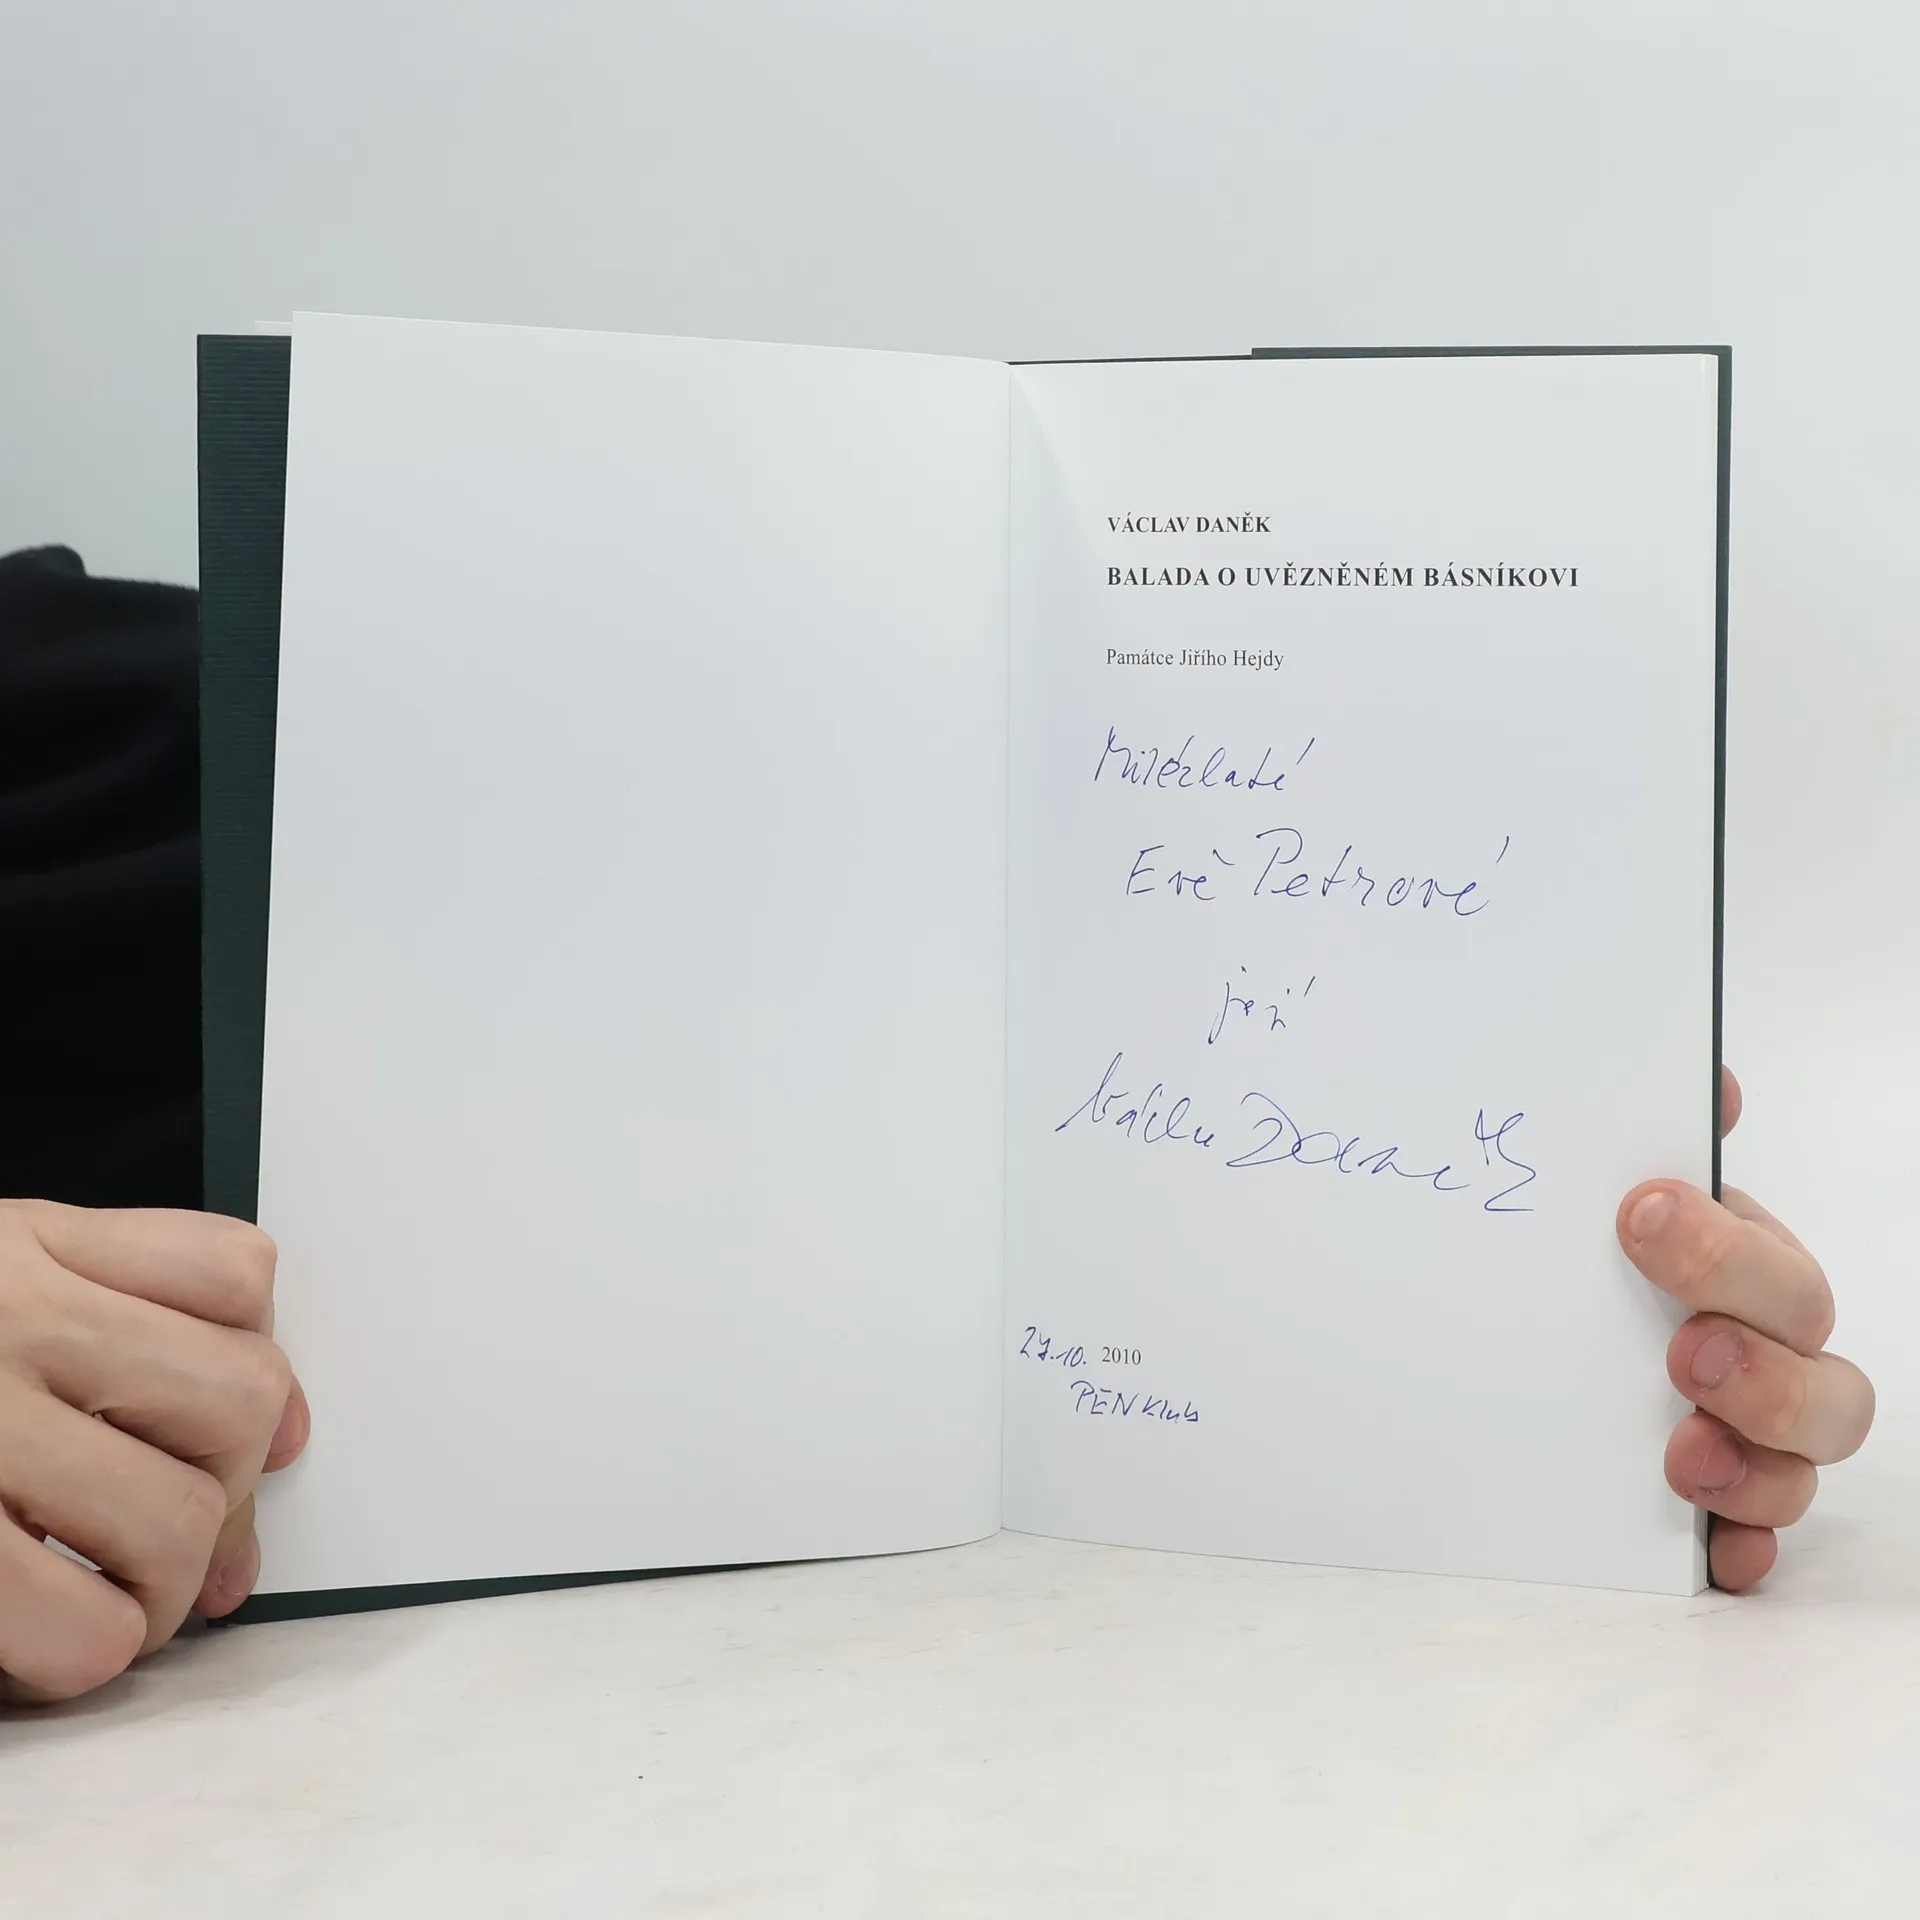 VÁCLAV DANĚK
BALADA O UVĚZNĚNÉM BÁSNÍKOVI
Památce Jiřího Hejdy
Milézlaté
Evě Petrové
její
Václav Daněk
27.10. 2010
PEN Klub